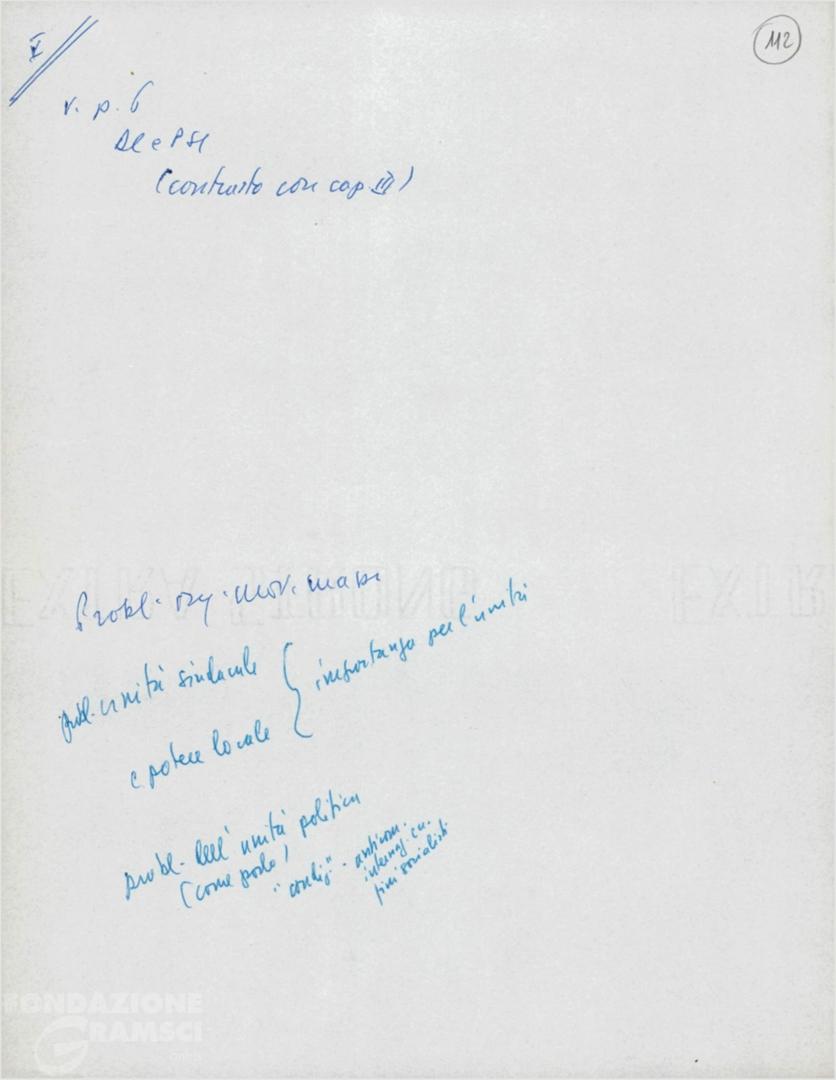 V
112
v. p. 6
DC e PSI
(contrasto con cap III)
EXTRA STRONG EXTR
Probl. org. mov. massa
probl. unità sindacale
e potere locale
importanza per l'unità
probl. dell'unità politica
(come
"condiz". anticom.
internaz.
fini socialisti
FONDAZIONE
GRAMSCI
onlus